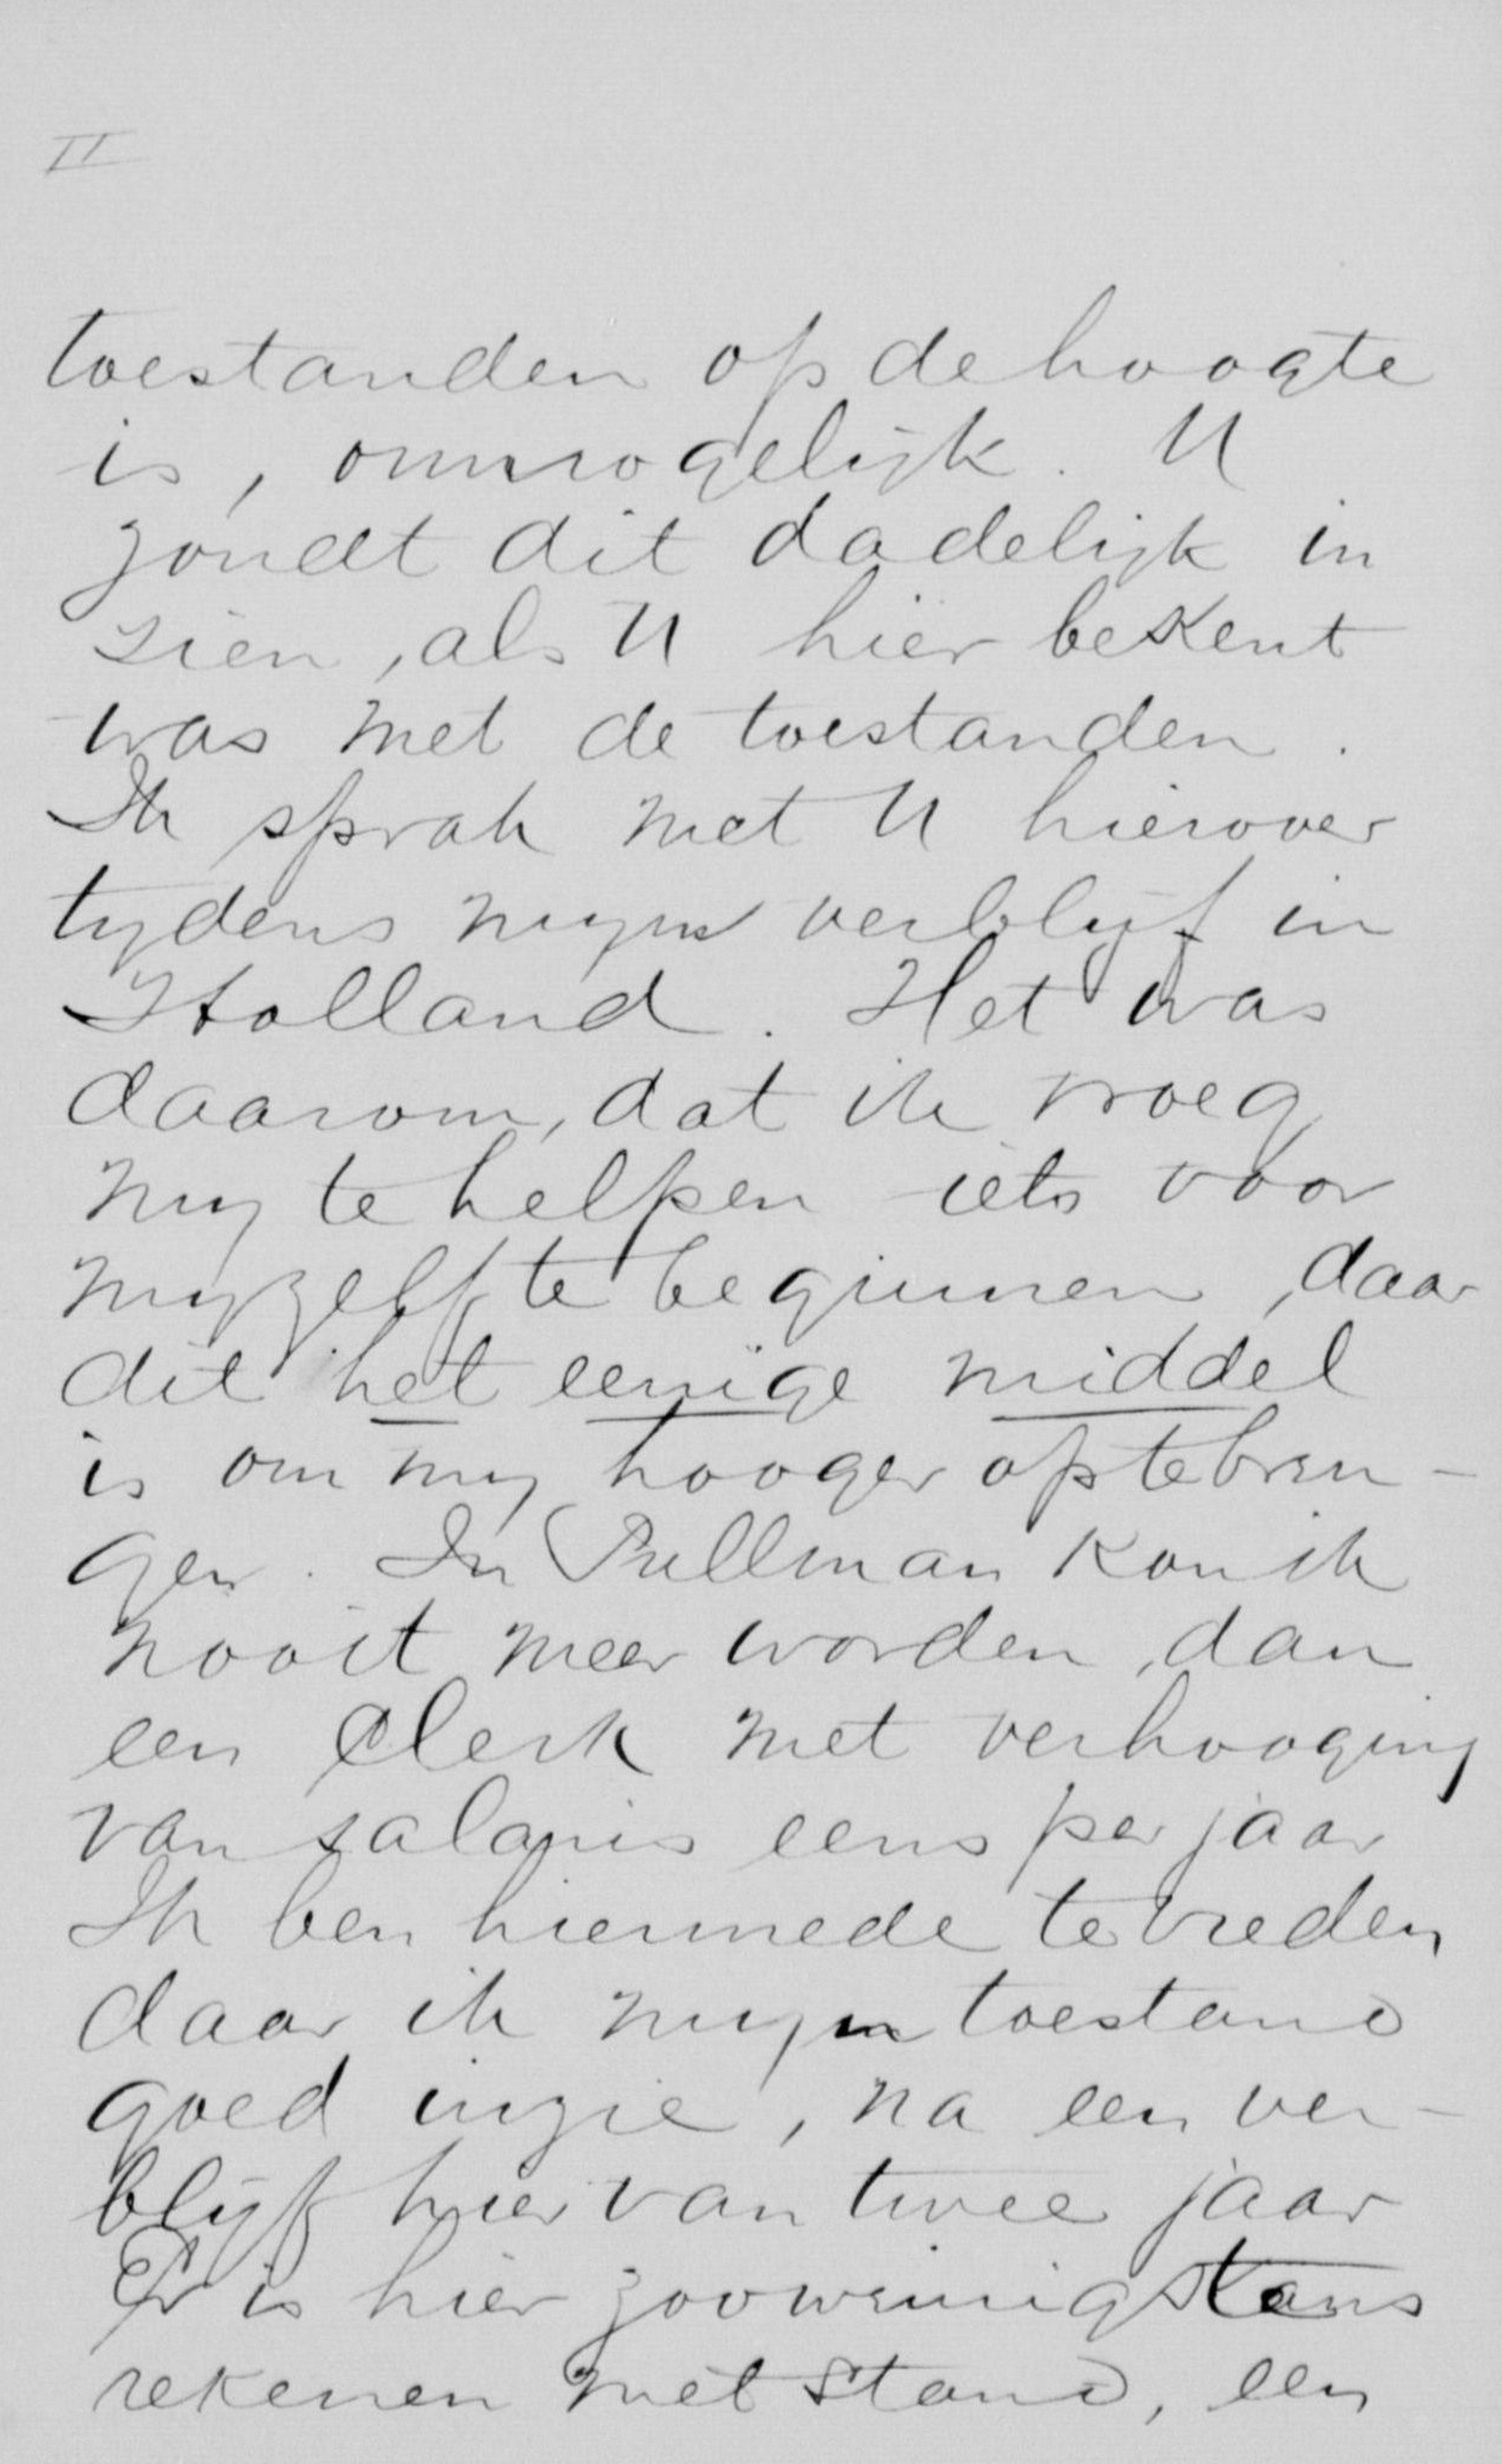 II
toestanden op de hoogte
is, onmogelijk. U
zoudt dit dadelijk in
zien, als U hier bekent
was met de toestanden.
Ik sprak met U hierover
tydens myn verblyf in
Holland. Het was
daarom, dat ik vroeg
my te helpen iets voor
myzelf te beginnen, daar
dit het eenige middel
is om my hooger optebren-
gen. In Pullman kon ik
nooit meer worden, dan
een Clerk met verhooging
van salaris eens per jaar
Ik ben hiermede tevreden
daar ik myn toestand
goed inzie, na een ver-
blyf hier van twee jaar
Er is hier zoo weinig
rekenen met stand, een